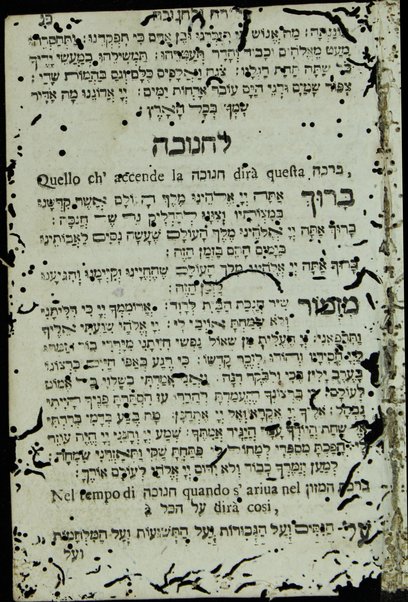 מה אנוש כי תזכרנו ובן אדם כי תפקדנו: ותחסרהו
מעט מאלהים וכבוד והדר תעטרהו: תמשילהו במעשי ידיך
כל שתה תחת רגליו: צנה ואלפים כלם וגם בהמות שדי:
צפור שמים ודגי הים עובר ארחות ימים: יְיָ אדוננו מה אדיר
שמך בכל הארץ:
לחנוכה
Quello ch' accende la חנוכה dirà questa ברכה,
ברוך אתה יְיָ אלהינו מלך העולם אשר קדשנו
במצותיו וצונו להדליק נר של חנכה:
ברוך אתה יְיָ אלהינו מלך העולם שעשה נסים לאבותינו
בימים ההם בזמן הזה:
ברוך אתה יְיָ אלהינו מלך העולם שהחיינו וקיימנו והגיענו
הזה:
מזמור שיר חנכת הבית לדוד: ארוממך יְיָ כי דליתני
ולא שמחת אויבי לי: יְיָ אלהי שועתי אליך
ותרפאני: יְיָ העלית מן שאול נפשי חייתני מירדי בור: זמרו
לייָ חסידיו והודו לזכר קדשו: כי רגע באפו חיים ברצונו
בערב ילין בכי ולבקר רנה: ואני אמרתי בשלוי בל אמוט
לעולם: יְיָ ברצונך העמדתה להררי עז הסתרת פניך הייתי
נבהל: אליך יְיָ אקרא ואל יְיָ אתחנן: מה בצע בדמי ברדתי
שחת היודך עפר היגיד אמתך: שמע יְיָ וחנני יְיָ היה עוזר
הפכת מספדי למחול לי פתחת שקי ותאזרני שמחה:
למען יזמרך כבוד ולא ידום יְיָ אלהי לעולם אודך:
Nel tempo di חנוכה quando s' ariua nel ברכת המזון
על הכל à dirà cosi,
על הנסים ועל הגבורות ועל התשועות ועל המלחמות
ועל